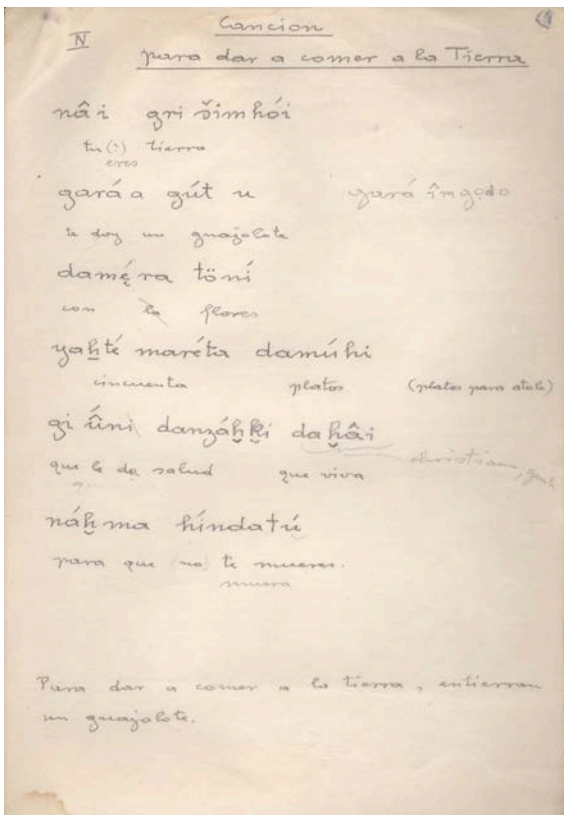 IV Cancion
para dar a comer a la Tierra
nâi gri šimhói
tu(?) tierra
eres
gará a gút u gará îmgo̧do
te doy un guajolote
damę́ra töní
con la flores
yaẖté maréta damúhi
cincuenta platos (platos para atole)
gi ű̂ni danzáẖḵi daẖâi
que le da salud que viva christian,
náẖma híndatú
para que no te mueres.
muera
Para dar a comer a la tierra, entierran
un guajolote.